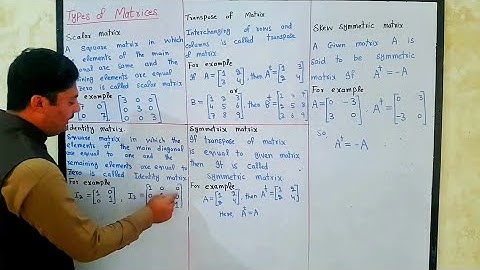 Types of Matrices
Scalar matrix
A square matrix in which
elements of the main
onal are same and the
aining elements are equal
zero is called Scalar matrix
example
[3 0 0
0 3 0
0 0 3]
0 7]
Identity matrix
square matrix in which the
elements of the main diagonal
are equal to one and the
remaining elements are equal to
zero is called Identity matrix
For example
I₂ = [1 0
0 1] , I₃ =
Transpose of Matrix
Interchanging of rows and
columns is called transpose
of matrix.
For example
If A = [1 2
3 4], then Aᵗ = [1 3
2 4]
or
B = [1 2 3
4 5 6
7 8 9], then Bᵗ =
Symmetric matrix
If transpose of matrix
is equal to given matrix
then It is called
Symmetric matrix
For example
A = [1 2
2 4], then Aᵗ = [1 2
2 4]
Here, Aᵗ = A
Skew symmetric matrix
A Given matrix A is
said to be symmetric
matrix If Aᵗ = -A
For example
A = [0 -3
3 0], Aᵗ = [0 3
-3 0]
So
Aᵗ = -A